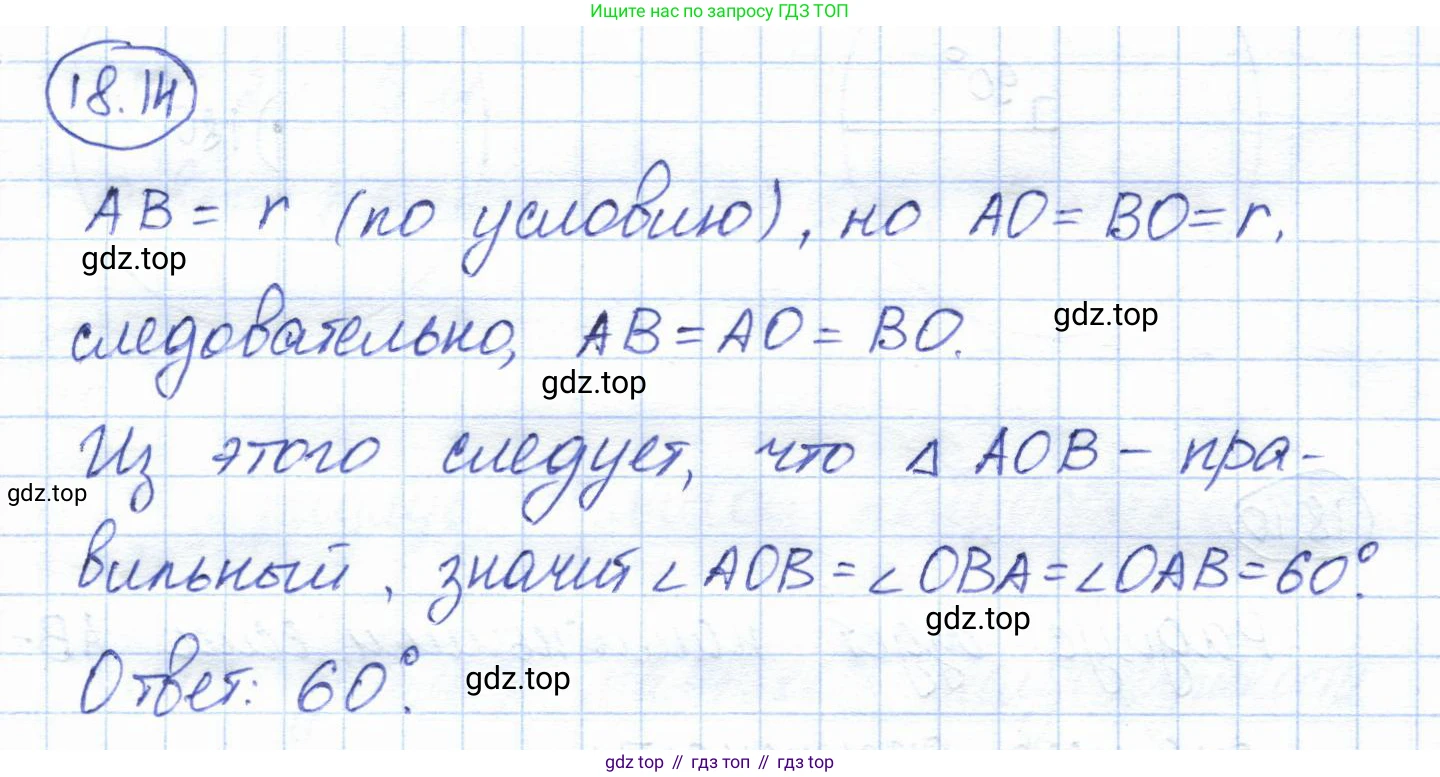 Ищите нас по запросу ГДЗ ТОП
18.14
AB = r (по условию), но AO = BO = r,
gdz.top
следовательно, AB = AO = BO.
gdz.top
gdz.top
Из этого следует, что Δ AOB – пра-
gdz.top
вильный, значит ∠AOB = ∠OBA = ∠OAB = 60°.
gdz.top
Ответ: 60°.
gdz.top
gdz top // гдз топ // гдз top